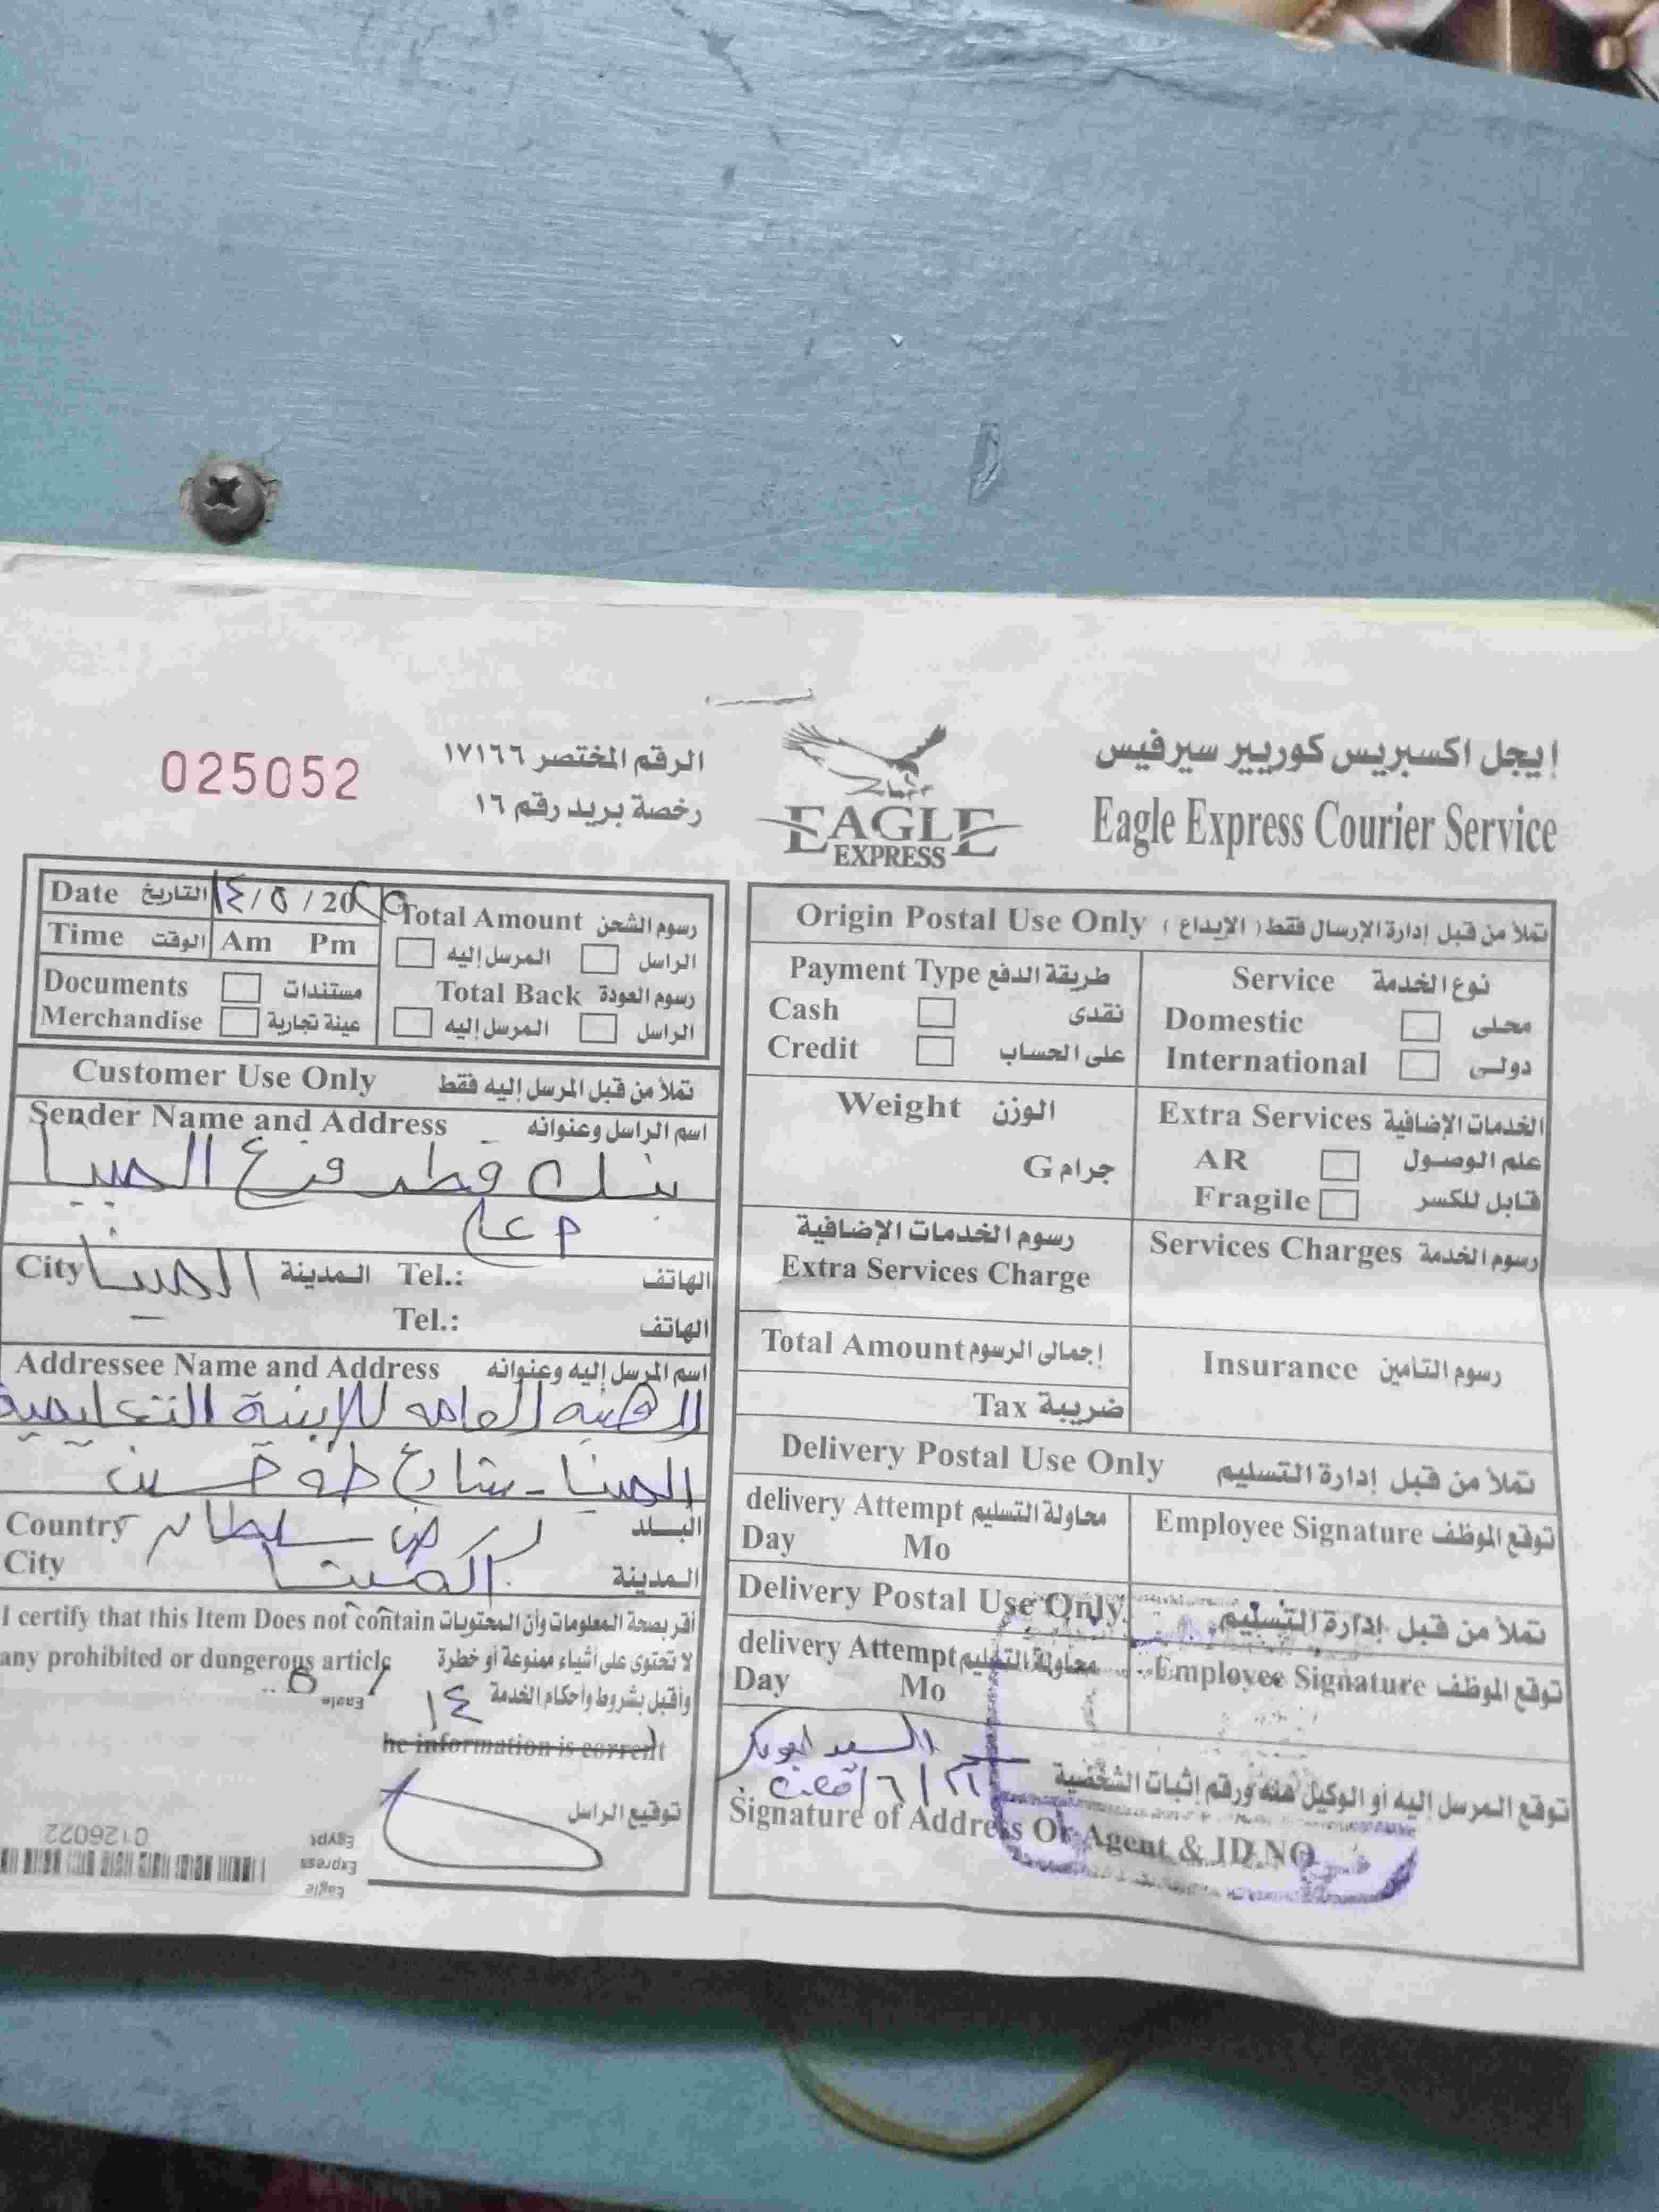 إيجل اكسبريس كوريير سيرفيس
Eagle Express Courier Service
EAGLE
EXPRESS
الرقم المختصر ١٧١٦٦
رخصة بريد رقم ١٦
025052
Date التاريخ ١٤/٥/20
Time الوقت Am Pm
Documents مستندات
Merchandise عينة تجارية
Total Amount رسوم الشحن
الراسل المرسل إليه
Total Back رسوم العودة
الراسل المرسل إليه
Customer Use Only تملأ من قبل المرسل إليه فقط
Sender Name and Address اسم الراسل وعنوانه
بنك قطر فرع المنيا
City المنيا المدينة Tel.: الهاتف
Tel.: الهاتف
Addressee Name and Address اسم المرسل إليه وعنوانه
الهيئة العامه للابنية التعليمية
المنيا - شارع طه حسين
Country ارض سلطان البلد
City المنيا المدينة
I certify that this Item Does not contain أقر بصحة المعلومات وأن المحتويات
any prohibited or dungerous article لا تحتوى على أشياء ممنوعة أو خطرة
وأقبل بشروط وأحكام الخدمة
١٤
he information is corrent
توقيع الراسل
Eagle
Express
Egypt
0126022
Origin Postal Use Only تملأ من قبل إدارة الإرسال فقط ( الإيداع )
Payment Type طريقة الدفع
Cash نقدى
Credit على الحساب
Service نوع الخدمة
Domestic محلى
International دولى
Weight الوزن
G جرام
Extra Services الخدمات الإضافية
AR علم الوصول
Fragile قابل للكسر
رسوم الخدمات الإضافية
Extra Services Charge
Services Charges رسوم الخدمة
Total Amount إجمالى الرسوم
Tax ضريبة
Insurance رسوم التأمين
Delivery Postal Use Only تملأ من قبل إدارة التسليم
delivery Attempt محاولة التسليم
Day Mo
Employee Signature توقع الموظف
Delivery Postal Use Only تملأ من قبل إدارة التسليم
delivery Attempt محاولة التسليم
Day Mo
Employee Signature توقع الموظف
السيد
توقع المرسل إليه أو الوكيل عنه ورقم إثبات الشخصية
Signature of Address Or Agent & ID NO